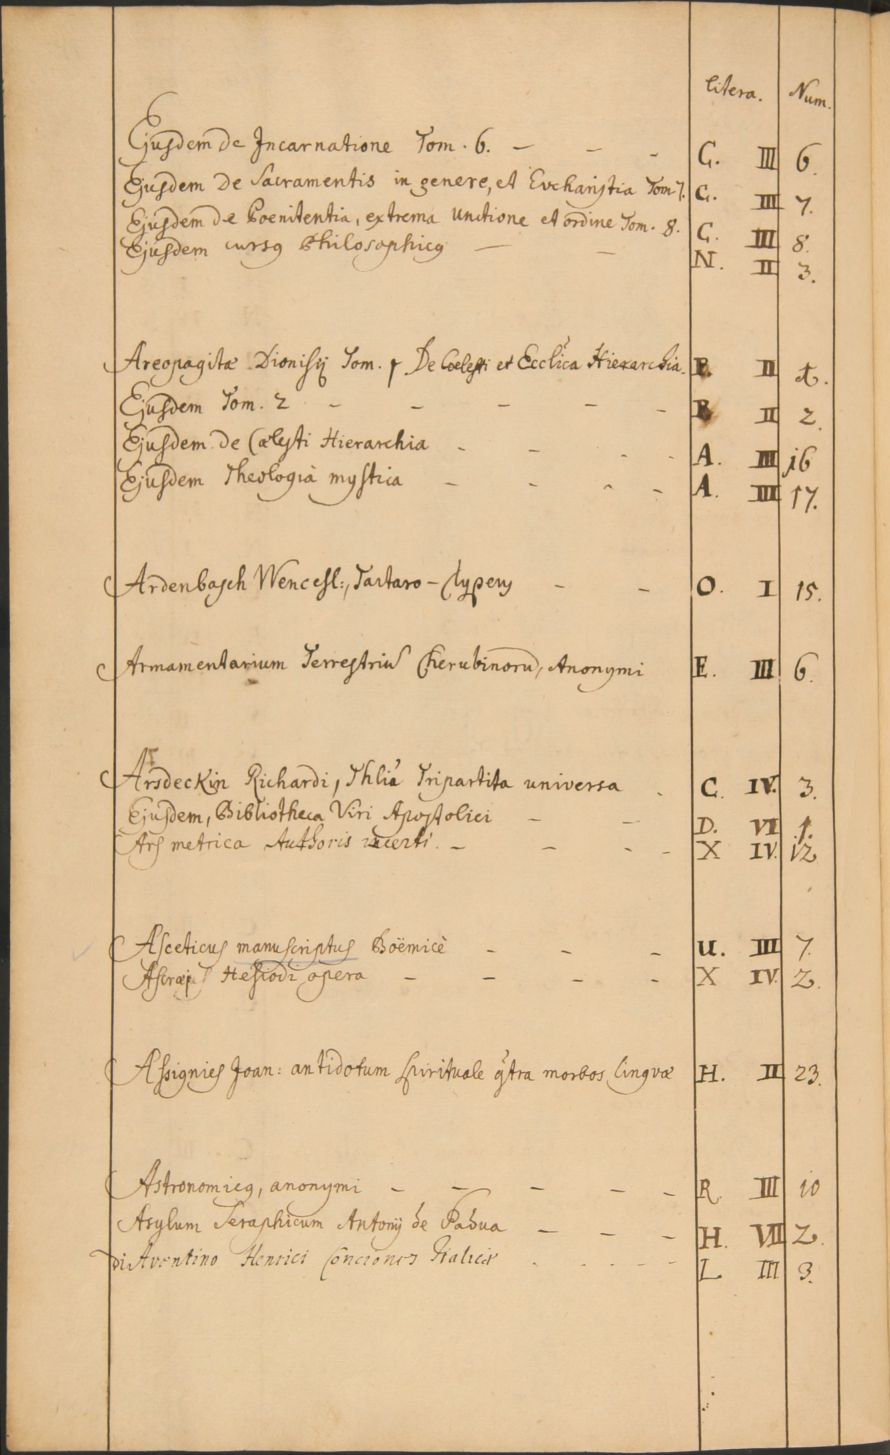 Litera. Num.
Ejusdem de Incarnatione Tom. 6. — — — C. III 6.
Ejusdem De Sacramentis in genere, et Evcharistia Tom 7. C. III 7.
Ejusdem de Poenitentia, extrema Unctione et ordine Tom. 8. C. III 8.
Ejusdem cursq Philosophicq — — N. II 3.
Areopagitæ Dionisij Tom. 1 De Coelesti et Ecclica Hierarchia. II 1.
Ejusdem Tom. 2 — — — — — II 2.
Ejusdem de Cælesti Hierarchia — — — — A. III 16
Ejusdem Theologia mystica — — — — A. III 17.
Ardenbasch Wencesl:, Tartaro-Clypeus — — O. I 15.
Armamentarium Terrestriu Cherubinoru, Anonymi E. III 6.
Arsdeckin Richardi, Thlia Tripartita universa — C. IV. 3.
Ejusdem, Bibliotheca Viri Apostolici — — D. VI 1.
Ars metrica Authoris incerti. — — — — X IV. 12
Asceticus manuscriptus Boëmicè — — — U. III 7.
Hesiodi opera — — — — X IV. 2.
Assignies Joan: antidotum spirituale qtra morbos lingvæ H. II 23.
Astronomicq, anonymi — — — — — R. III 10
Asylum Seraphicum Antonij de Padua — — — H. VII 2.
di Aventino Henrici Conciones Italicæ - - - - - L III 3.